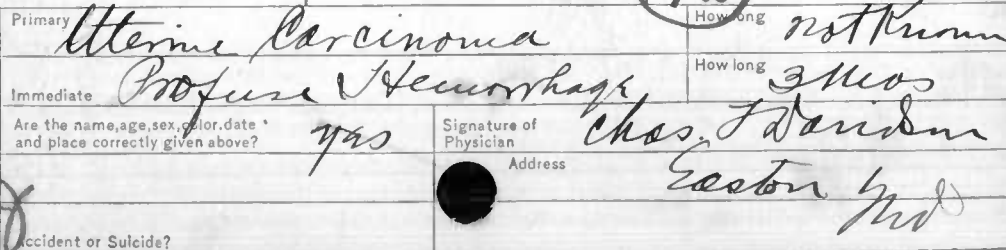 Primary Uterine Carcinoma How long not Known
Immediate Profuse Hemorrhage How long 3 Mos
Are the name, age, sex, color. date
and place correctly given above? yes Signature of
Physician Chas. F Davidson
Address Easton Md
Accident or Suicide?